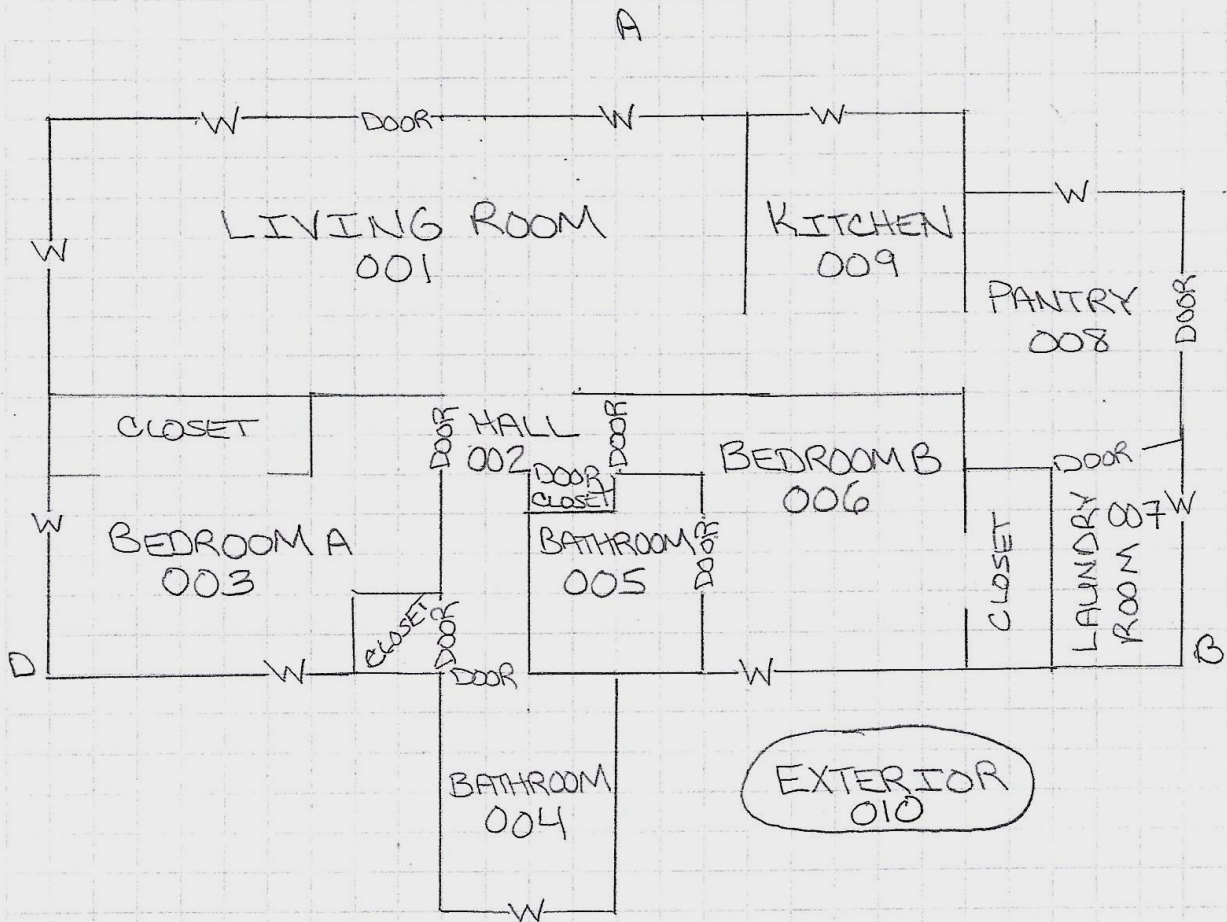 A
W
DOOR
W
W
LIVING ROOM
001
W
KITCHEN
009
W
PANTRY
008
DOOR
CLOSET
DOOR
HALL
002
DOOR
DOOR
CLOSET
BEDROOM B
006
DOOR
W
BEDROOM A
003
W
BATHROOM
005
DOOR
CLOSET
LAUNDRY
ROOM 007
W
CLOSET
DOOR
DOOR
D
W
W
B
BATHROOM
004
W
EXTERIOR
010